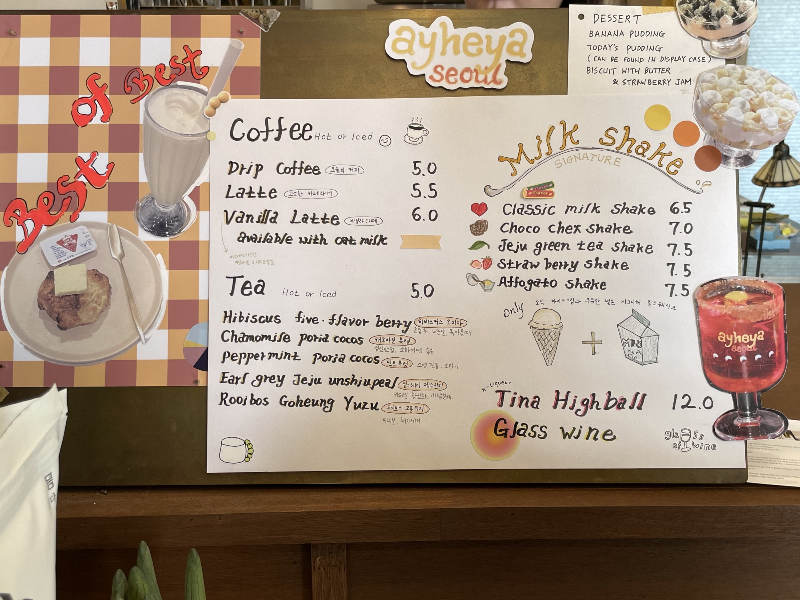 Best of Best
Best
ayheya
seoul
DESSERT
BANANA PUDDING
TODAY'S PUDDING
(CAN BE FOUND IN DISPLAY CASE)
BISCUIT WITH BUTTER
& STRAWBERRY JAM
Coffee Hot or Iced
Drip Coffee 5.0
Latte 5.5
Vanilla Latte 6.0
available with oat milk
Tea Hot or Iced 5.0
Hibiscus five-flavor berry
Chamomile poria cocos
peppermint poria cocos
Earl grey Jeju unshiu peel
Rooibos Goheung Yuzu
Milk shake
SIGNATURE
Classic milk Shake 6.5
Choco chex shake 7.0
Jeju green tea shake 7.5
Strawberry shake 7.5
Affogato shake 7.5
Only
+
MILK
Tina Highball 12.0
Glass wine
glass
of wine
ayheya
seoul